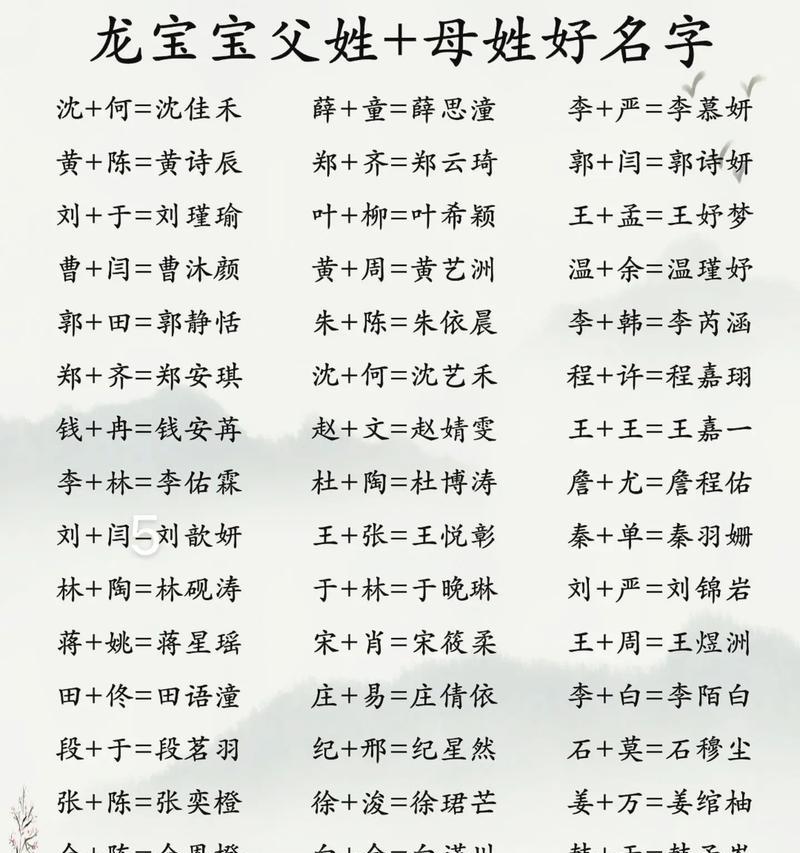 龙宝宝父姓+母姓好名字
沈+何=沈佳禾 薛+童=薛思潼 李+严=李慕妍
黄+陈=黄诗辰 郑+齐=郑云琦 郭+闫=郭诗妍
刘+于=刘瑾瑜 叶+柳=叶希颖 王+孟=王妤梦
曹+闫=曹沐颜 黄+周=黄艺洲 温+余=温瑾妤
郭+田=郭静恬 朱+陈=朱依晨 李+韩=李芮涵
郑+齐=郑安琪 沈+何=沈艺禾 程+许=程嘉珝
钱+冉=钱安苒 赵+文=赵婧雯 王+王=王嘉一
李+林=李佑霖 杜+陶=杜博涛 詹+尤=詹程佑
刘+闫=刘歆妍 王+张=王悦彰 秦+单=秦羽姗
5
林+陶=林砚涛 于+林=于晚琳 刘+严=刘锦岩
蒋+姚=蒋星瑶 宋+肖=宋筱柔 王+周=王煜洲
田+佟=田语潼 庄+易=庄倩依 李+白=李陌白
段+于=段茗羽 纪+邢=纪星然 石+莫=石穆尘
张+陈=张奕橙 徐+浚=徐珺芒 姜+万=姜绾柚